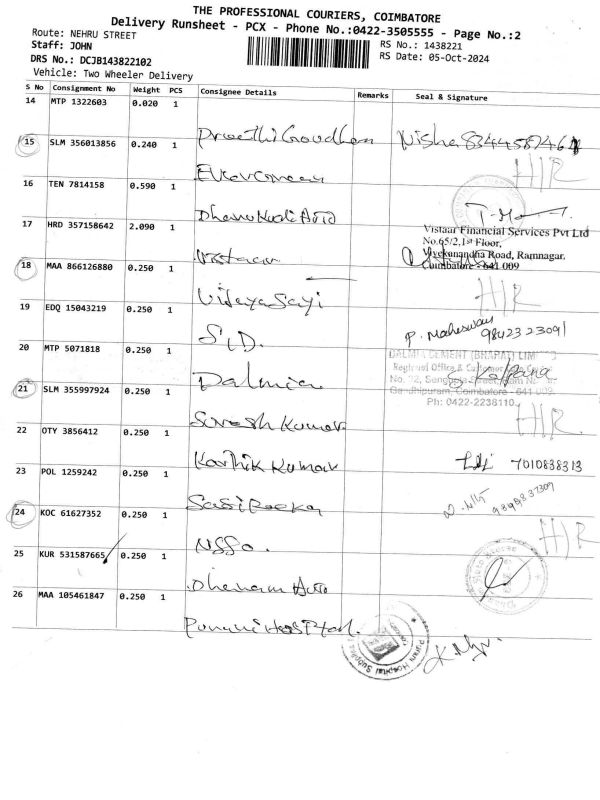 THE PROFESSIONAL COURIERS, COIMBATORE
Delivery Runsheet - PCX - Phone No.:0422-3505555 - Page No.:2
Route: NEHRU STREET
Staff: JOHN
DRS No.: DCJB143822102
Vehicle: Two Wheeler Delivery
RS No.: 1438221
RS Date: 05-Oct-2024
S No Consignment No Weight PCS Consignee Details Remarks Seal & Signature
14 MTP 1322603 0.020 1 Preethi Goudham Nisha
15 SLM 356013856 0.240 1 HIR
16 TEN 7814158 0.590 1 Dhanu Kodi Auto
17 HRD 357158642 2.090 1 Vistaar
Vistaar Financial Services Pvt Ltd
No.65/2,1st Floor,
Vivekanandha Road, Ramnagar.
Coimbatore - 641 009
18 MAA 866126880 0.250 1 Vijaya Sayi HIR
19 EDQ 15043219 0.250 1 S.I.D. P. Maheswari
9842323091
20 MTP 5071818 0.250 1 Dalmia Kalpana
DALMIA CEMENT (BHARAT) LIMITED
Gandhipuram, Coimbatore - 641 009
Ph: 0422-2238110
21 SLM 355997924 0.250 1 Suresh Kumar HIR
22 OTY 3856412 0.250 1 Karthik Kumar 7010838313
23 POL 1259242 0.250 1
24 KOC 61627352 0.250 1 NSSO. HIR
25 KUR 531587665 0.250 1 Dhanam Auto
26 MAA 105461847 0.250 1 Punani Hospital.